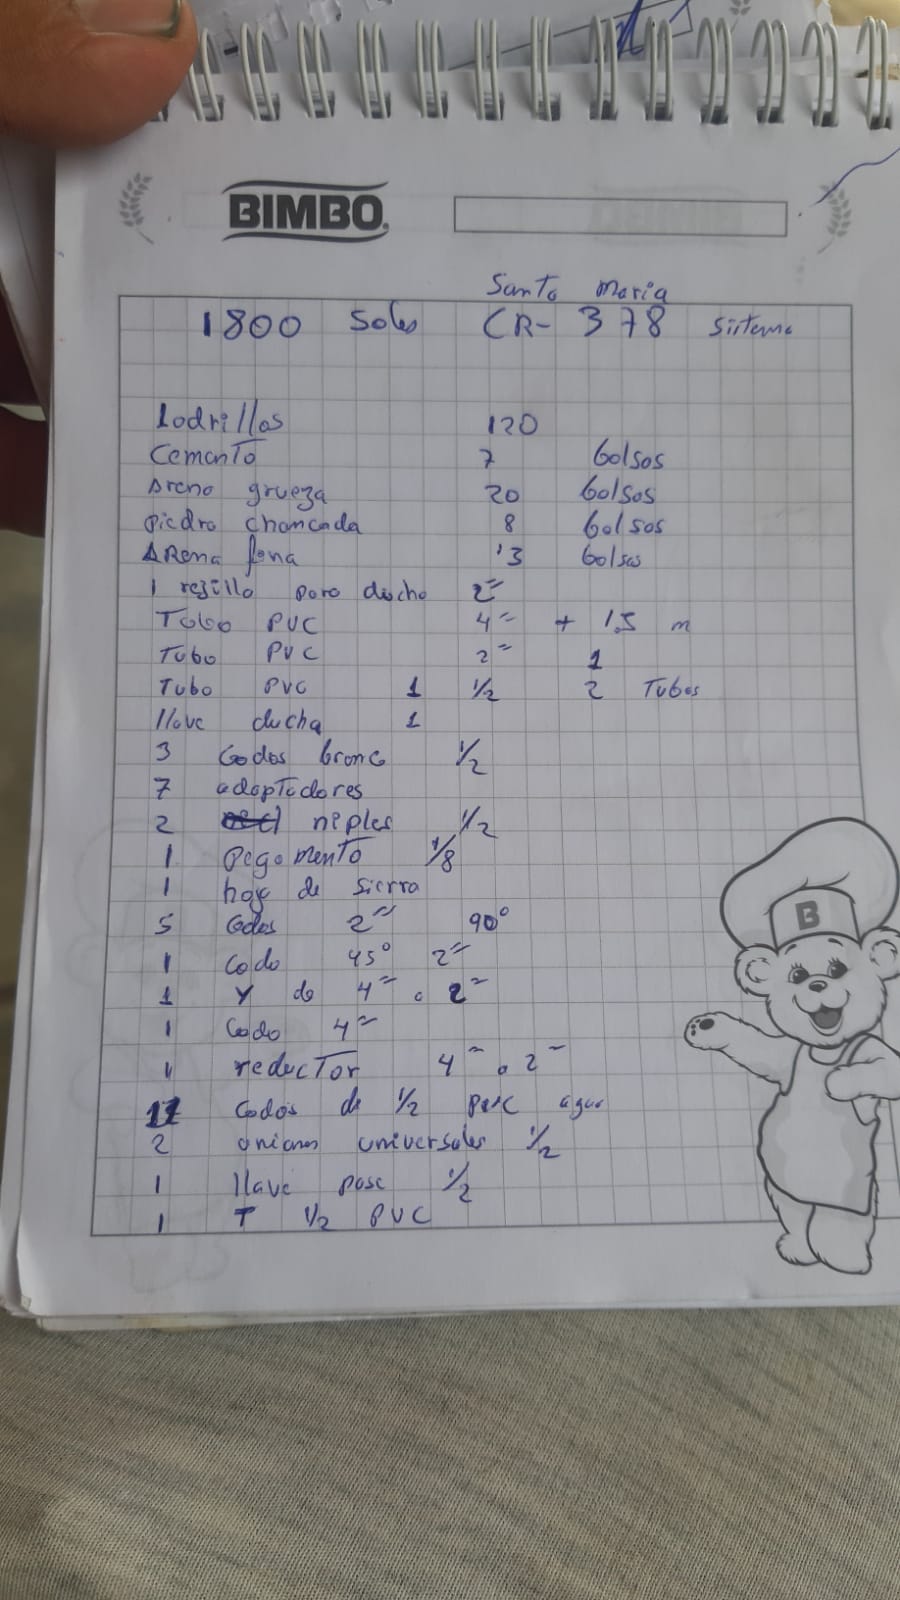 BIMBO
Santa Maria
1800 Soles CR- 378 Sistema
Ladrillos 120
Cemento 7 bolsas
Arena grueza 20 bolsas
Piedra chancada 8 bolsas
ARena fina 13 bolsas
1 rejilla para ducha 2"
Tubo PVC 4" + 1.5 m
Tubo PVC 2" 1
Tubo PVC 1 1/2 2 Tubos
llave ducha 1
3 Codos bronc 1/2
7 adaptadores
2 niples 1/2
1 pegamento 1/8
1 hoja de sierra
5 Codos 2" 90°
1 Codo 45° 2"
1 Y de 4" a 2"
1 Codo 4"
1 reductor 4" a 2"
Codos de 1/2 agua
2 uniones universales 1/2
1 llave pase 1/2
1 T 1/2 PVC
B